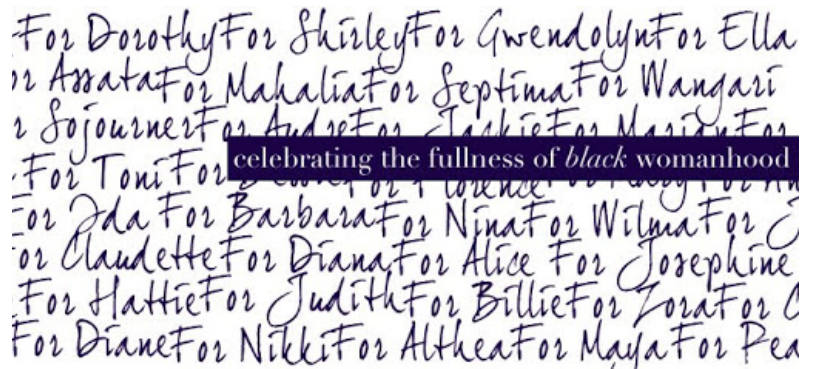 For Dorothy For Shirley For Gwendolyn For Ella
or Assata For Mahalia For Septima For Wangari
r Sojourner For Audre For Jackie For Marian For
celebrating the fullness of black womanhood
For Toni For For Florence For For An
For Ida For Barbara For Nina For Wilma For J
or Claudette For Diana For Alice For Josephine
For Hattie For Judith For Billie For Zora For C
For Diane For Nikki For Althea For Maya For Pea